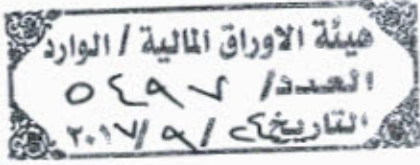 هيئة الاوراق المالية / الوارد
العدد/ ٥٤٩٧
التاريخ ٢٤/٩/٢٠١٧